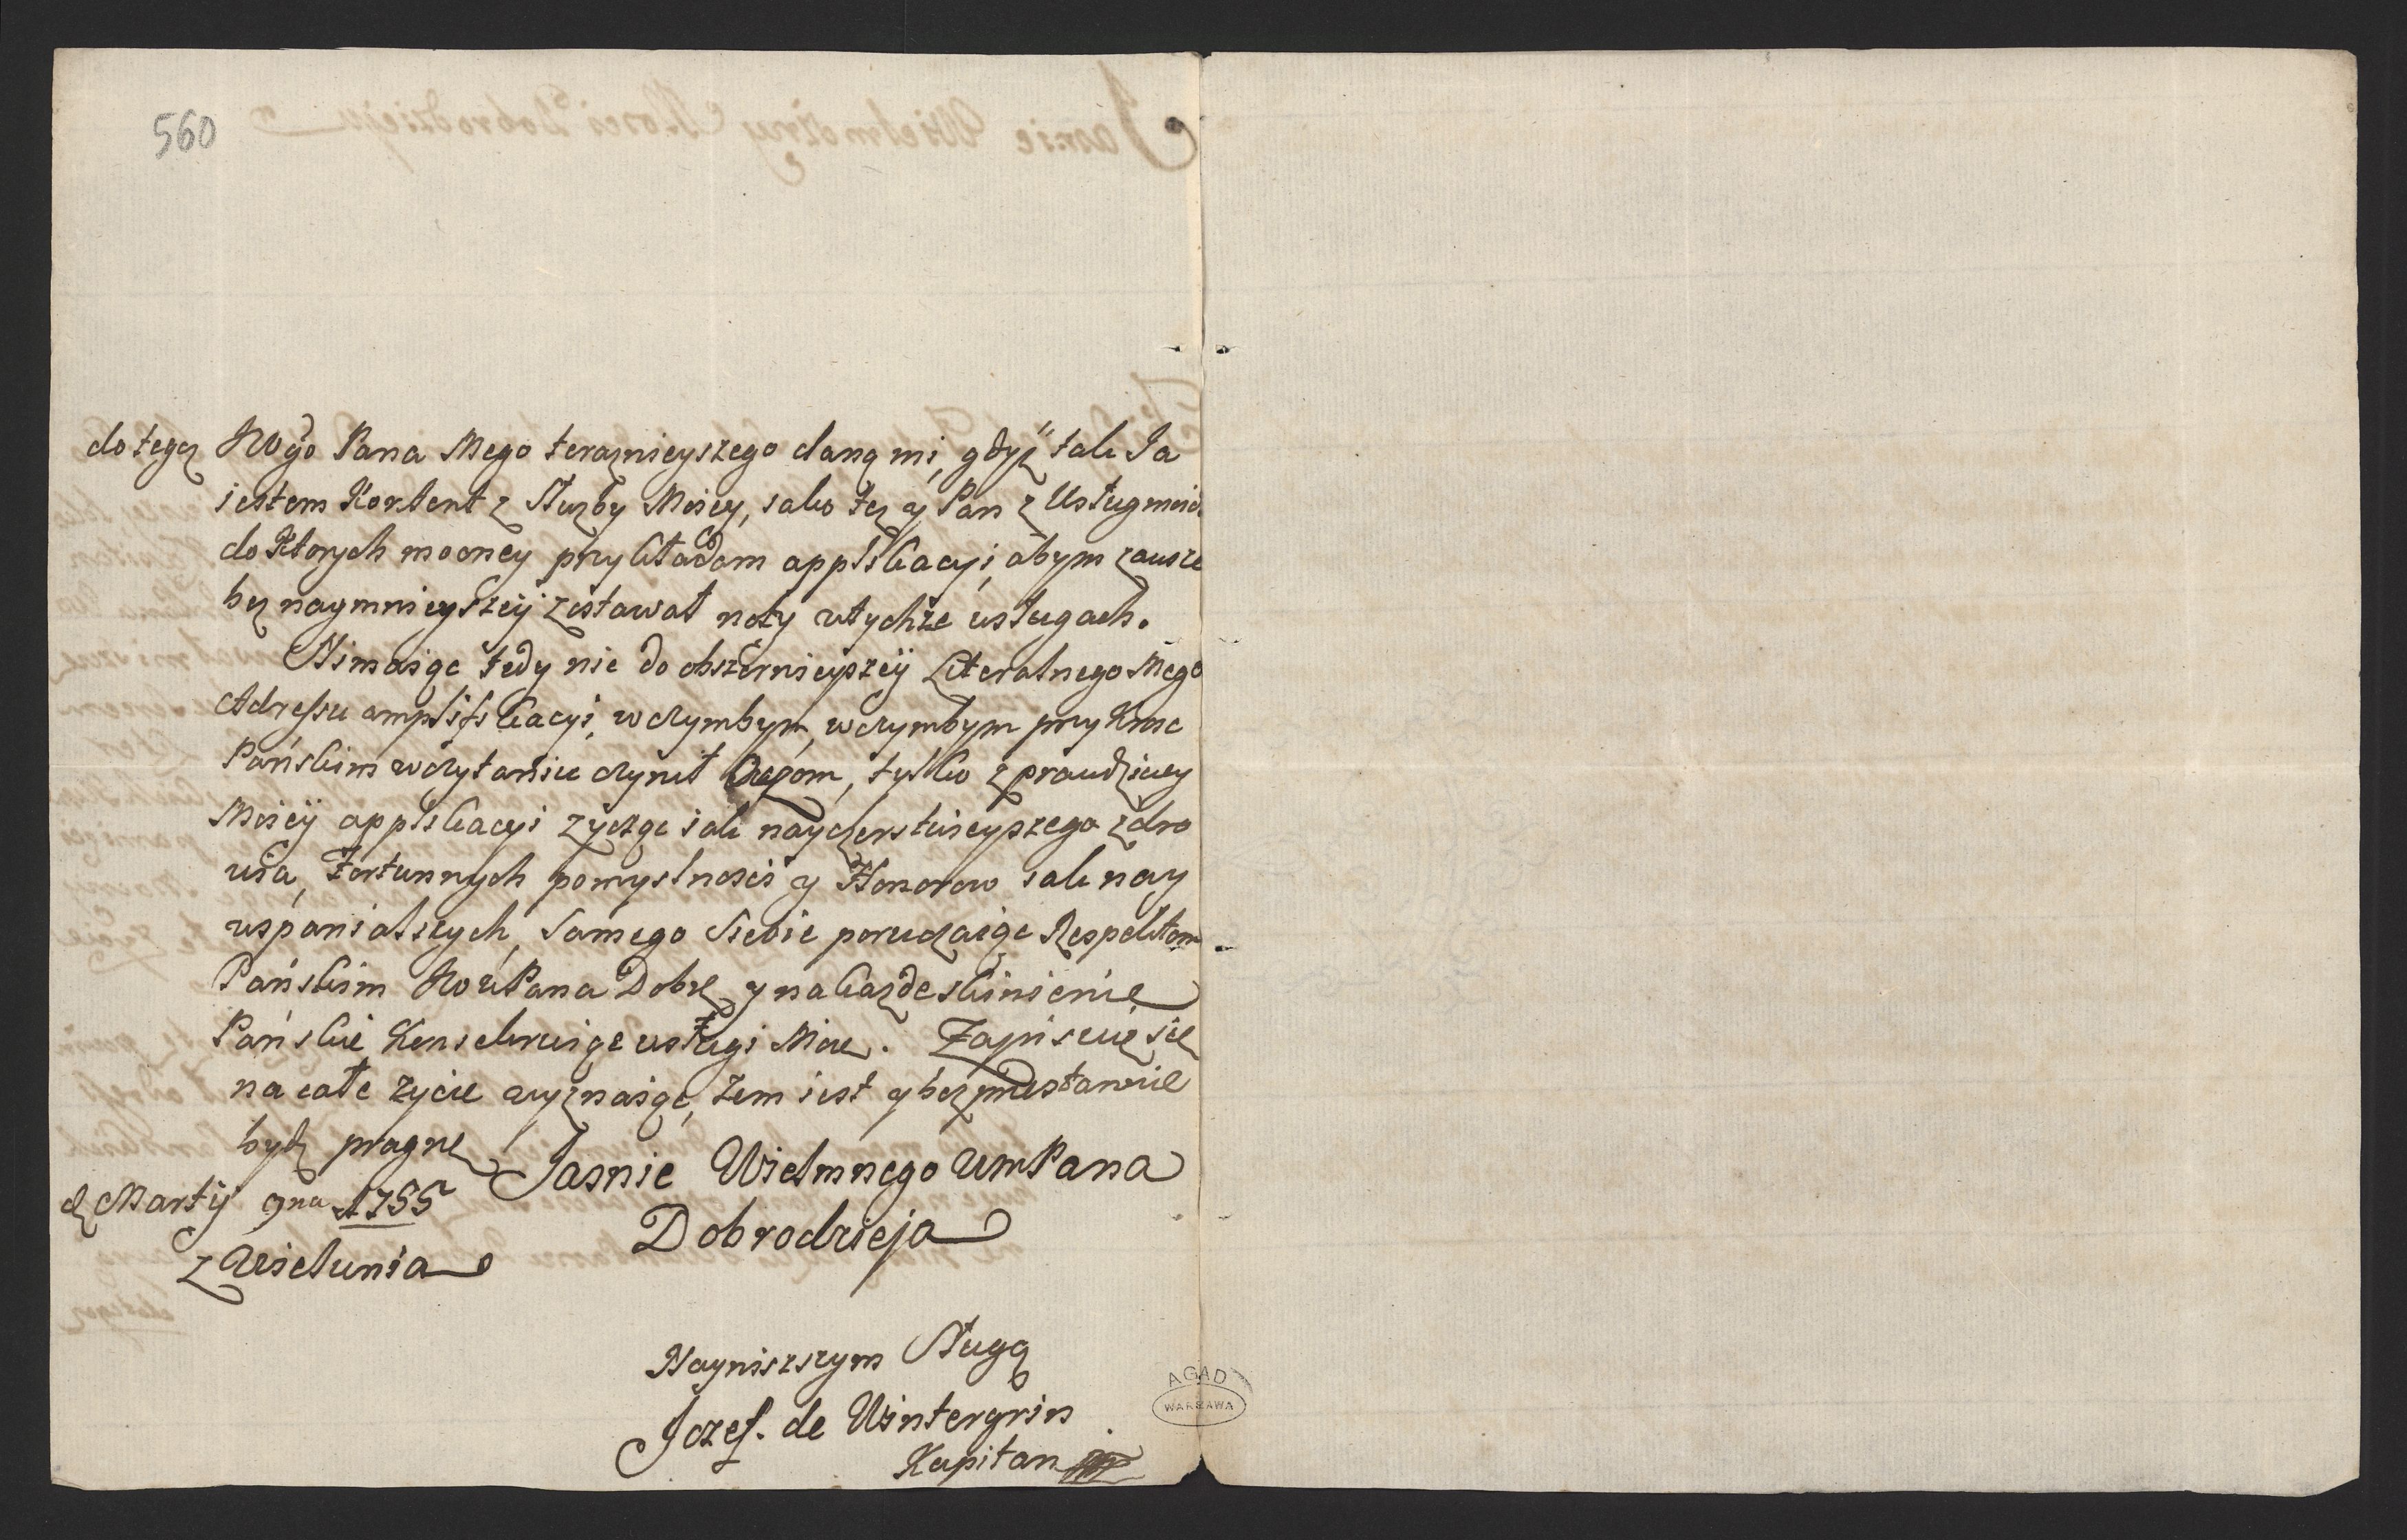 560
do tegoz JWgo Pana Mego teraznieyszego daną mi, gdyż tak Ja
iestem Kontent z Służby Moiey, iako tez y Pan z Usług moich
do Ktorych mocney przykładam applikacyi, abym zausze
bez naymnieyszey zostawał noty wtychże usługach.
Nimaiąc tedy nic do obszernieyszey Literalnego Mego
Adressu amplifikacyi, w czymbym, w czymbym przykrosc
Pańskim w czytaniu czynił Oczom, tylko z prawdziwey
Moiey applikacyi zycząc iak nayczerstwieyszego zdro
wia, Fortunnych pomyslnosci y Honorow iak nay
wspanialszych, Samego Siebie poruczaiąc Respektom
Pańskim JWWPana Dobr y na kazde skinienie
Pańskie Konsekruiąc usługi Moie. Zapisuię się
na całe zycie wyznaiąc, żem iest y bez przestannie
bydz pragnę Jasnie Wielmnego WmPana
Dobrodzieja
d Martij 9na 1755
z Wielunia
Nayniszszym Sługą
Jozef. de Wintergrin
Kapitan
AGAD
WARSZAWA